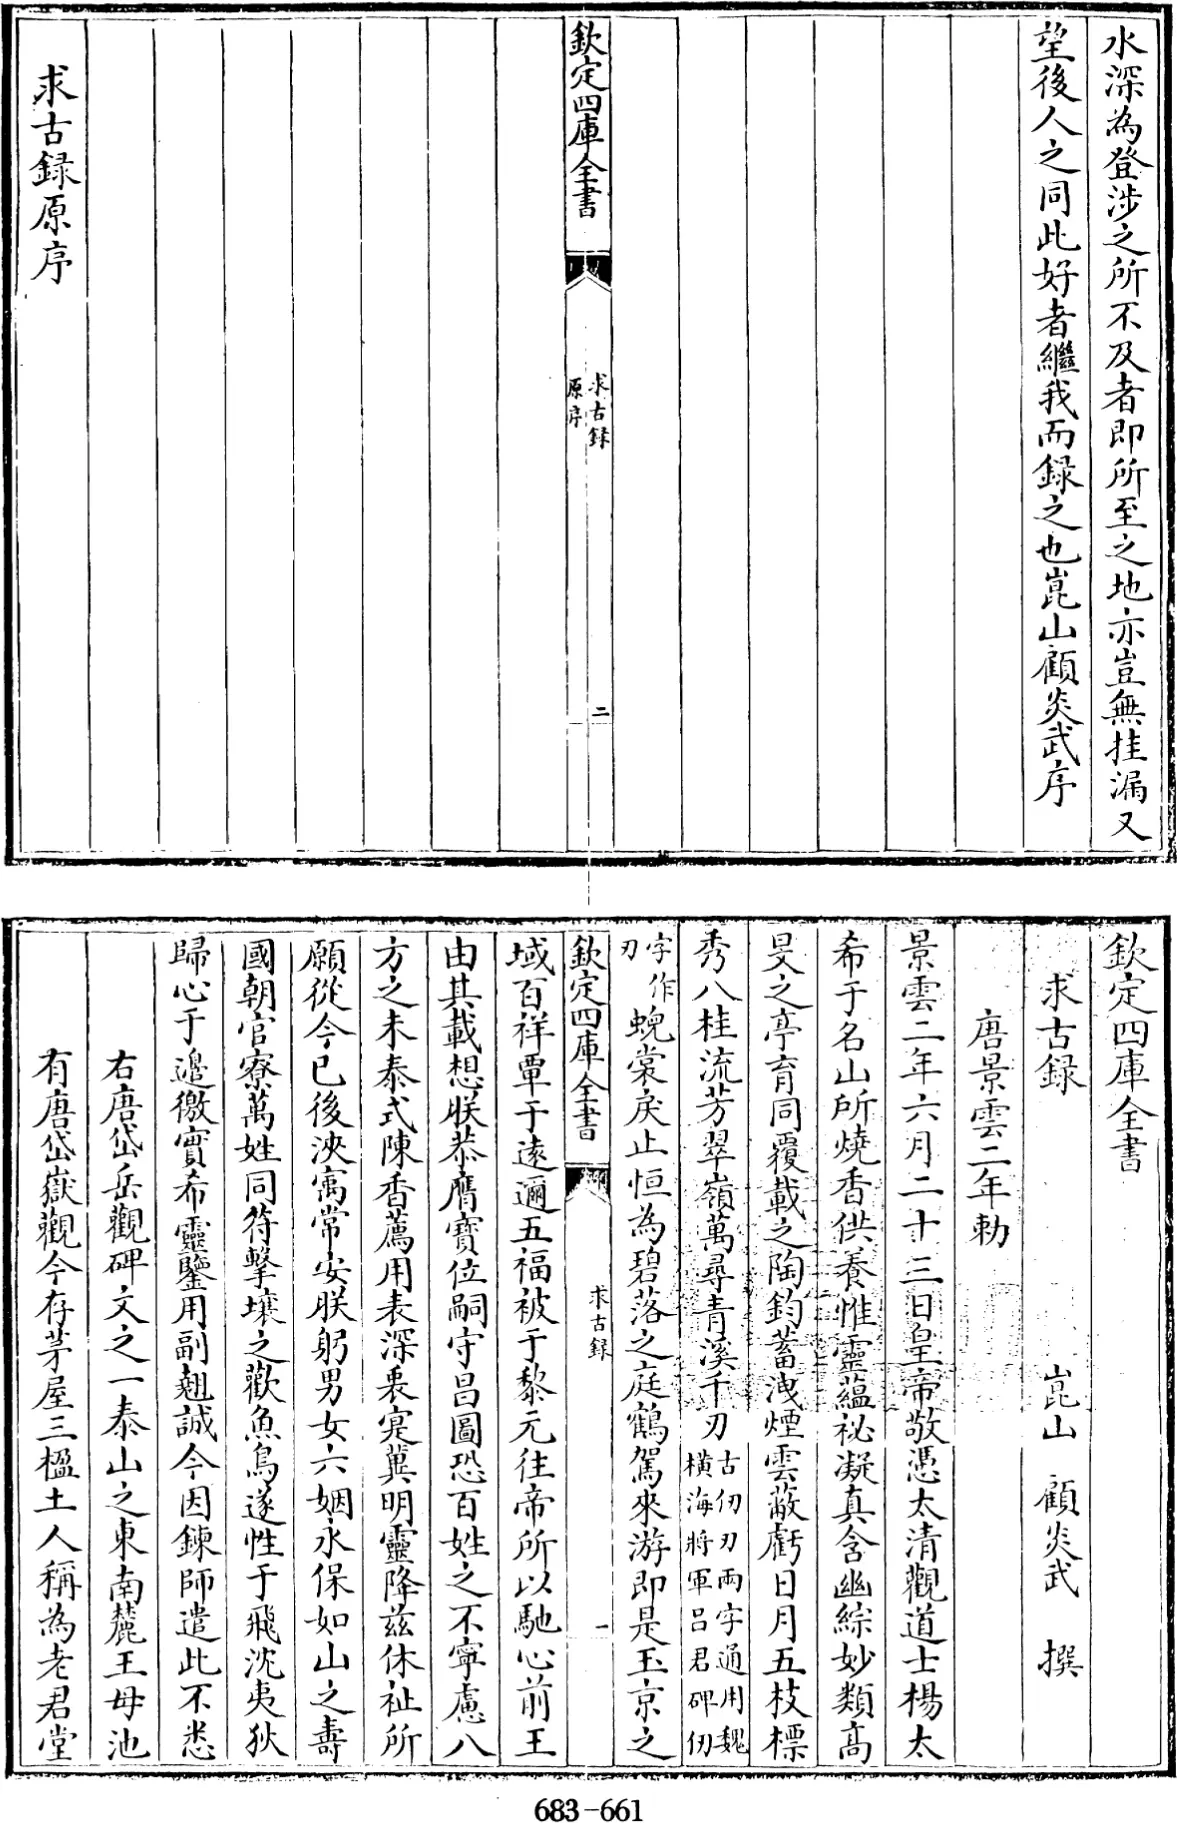 水深為登涉之所不及者即所至之地亦豈無挂漏又
望後人之同此好者繼我而録之也崑山顧炎武序
欽定四庫全書
求古録
原序
二
求古録原序
欽定四庫全書
求古録
崑山 顧炎武 撰
唐景雲二年勅
景雲二年六月二十三日皇帝敬憑太清觀道士楊太
希于名山所燒香供養惟靈藴祕凝真含幽綜妙類高
旻之亭育同覆載之陶鈞蓄洩煙雲蔽虧日月五枝標
秀八桂流芳翠嶺萬尋青溪千刃
古仞刃兩字通用魏
橫海將軍吕君碑仞
字作
刃
蜺裳戾止恒為碧落之庭鶴駕來游即是玉京之
欽定四庫全書
求古録
一
域百祥覃于遠邇五福被于黎元往帝所以馳心前王
由其載想朕恭膺寶位嗣守昌圖恐百姓之不寧慮八
方之未泰式陳香薦用表深衷寔冀明靈降兹休祉所
願從今已後浹寓常安朕躬男女六姻永保如山之壽
國朝官寮萬姓同符擊壤之歡魚鳥遂性于飛沈夷狄
歸心于邉徼實希靈鑒用副翹誠今因鍊師遣此不悉
右唐岱岳觀碑文之一泰山之東南麓王母池
有唐岱嶽觀今存茅屋三楹土人稱為老君堂
683-661